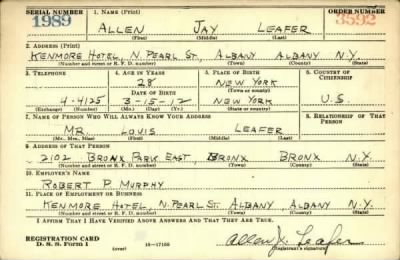 SERIAL NUMBER 1. NAME (Print) ORDER NUMBER
1989 ALLEN JAY LEAFER 3592
(First) (Middle) (Last)
2. ADDRESS (Print)
KENMORE HOTEL, N. PEARL ST., ALBANY ALBANY N.Y.
(Number and street or R. F. D. number) (Town) (County) (State)
3. TELEPHONE 4. AGE IN YEARS 5. PLACE OF BIRTH 6. COUNTRY OF CITIZENSHIP
28 NEW YORK
DATE OF BIRTH (Town or county)
4-4125 3-15-12 NEW YORK U.S.
(Exchange) (Number) (Mo.) (Day) (Yr.) (State or country)
7. NAME OF PERSON WHO WILL ALWAYS KNOW YOUR ADDRESS 8. RELATIONSHIP OF THAT PERSON
MR. LOUIS LEAFER
(Mr., Mrs., Miss) (First) (Middle) (Last)
9. ADDRESS OF THAT PERSON
2102 BRONX PARK EAST, BRONX BRONX N.Y.
(Number and street or R. F. D. number) (Town) (County) (State)
10. EMPLOYER'S NAME
ROBERT P. MURPHY
11. PLACE OF EMPLOYMENT OR BUSINESS
KENMORE HOTEL, N. PEARL ST. ALBANY, ALBANY N.Y.
(Number and street or R. F. D. number) (Town) (County) (State)
I AFFIRM THAT I HAVE VERIFIED ABOVE ANSWERS AND THAT THEY ARE TRUE.
REGISTRATION CARD
D. S. S. Form 1 (over) 16-17105 Allen J. Leafer
(Registrant's signature)